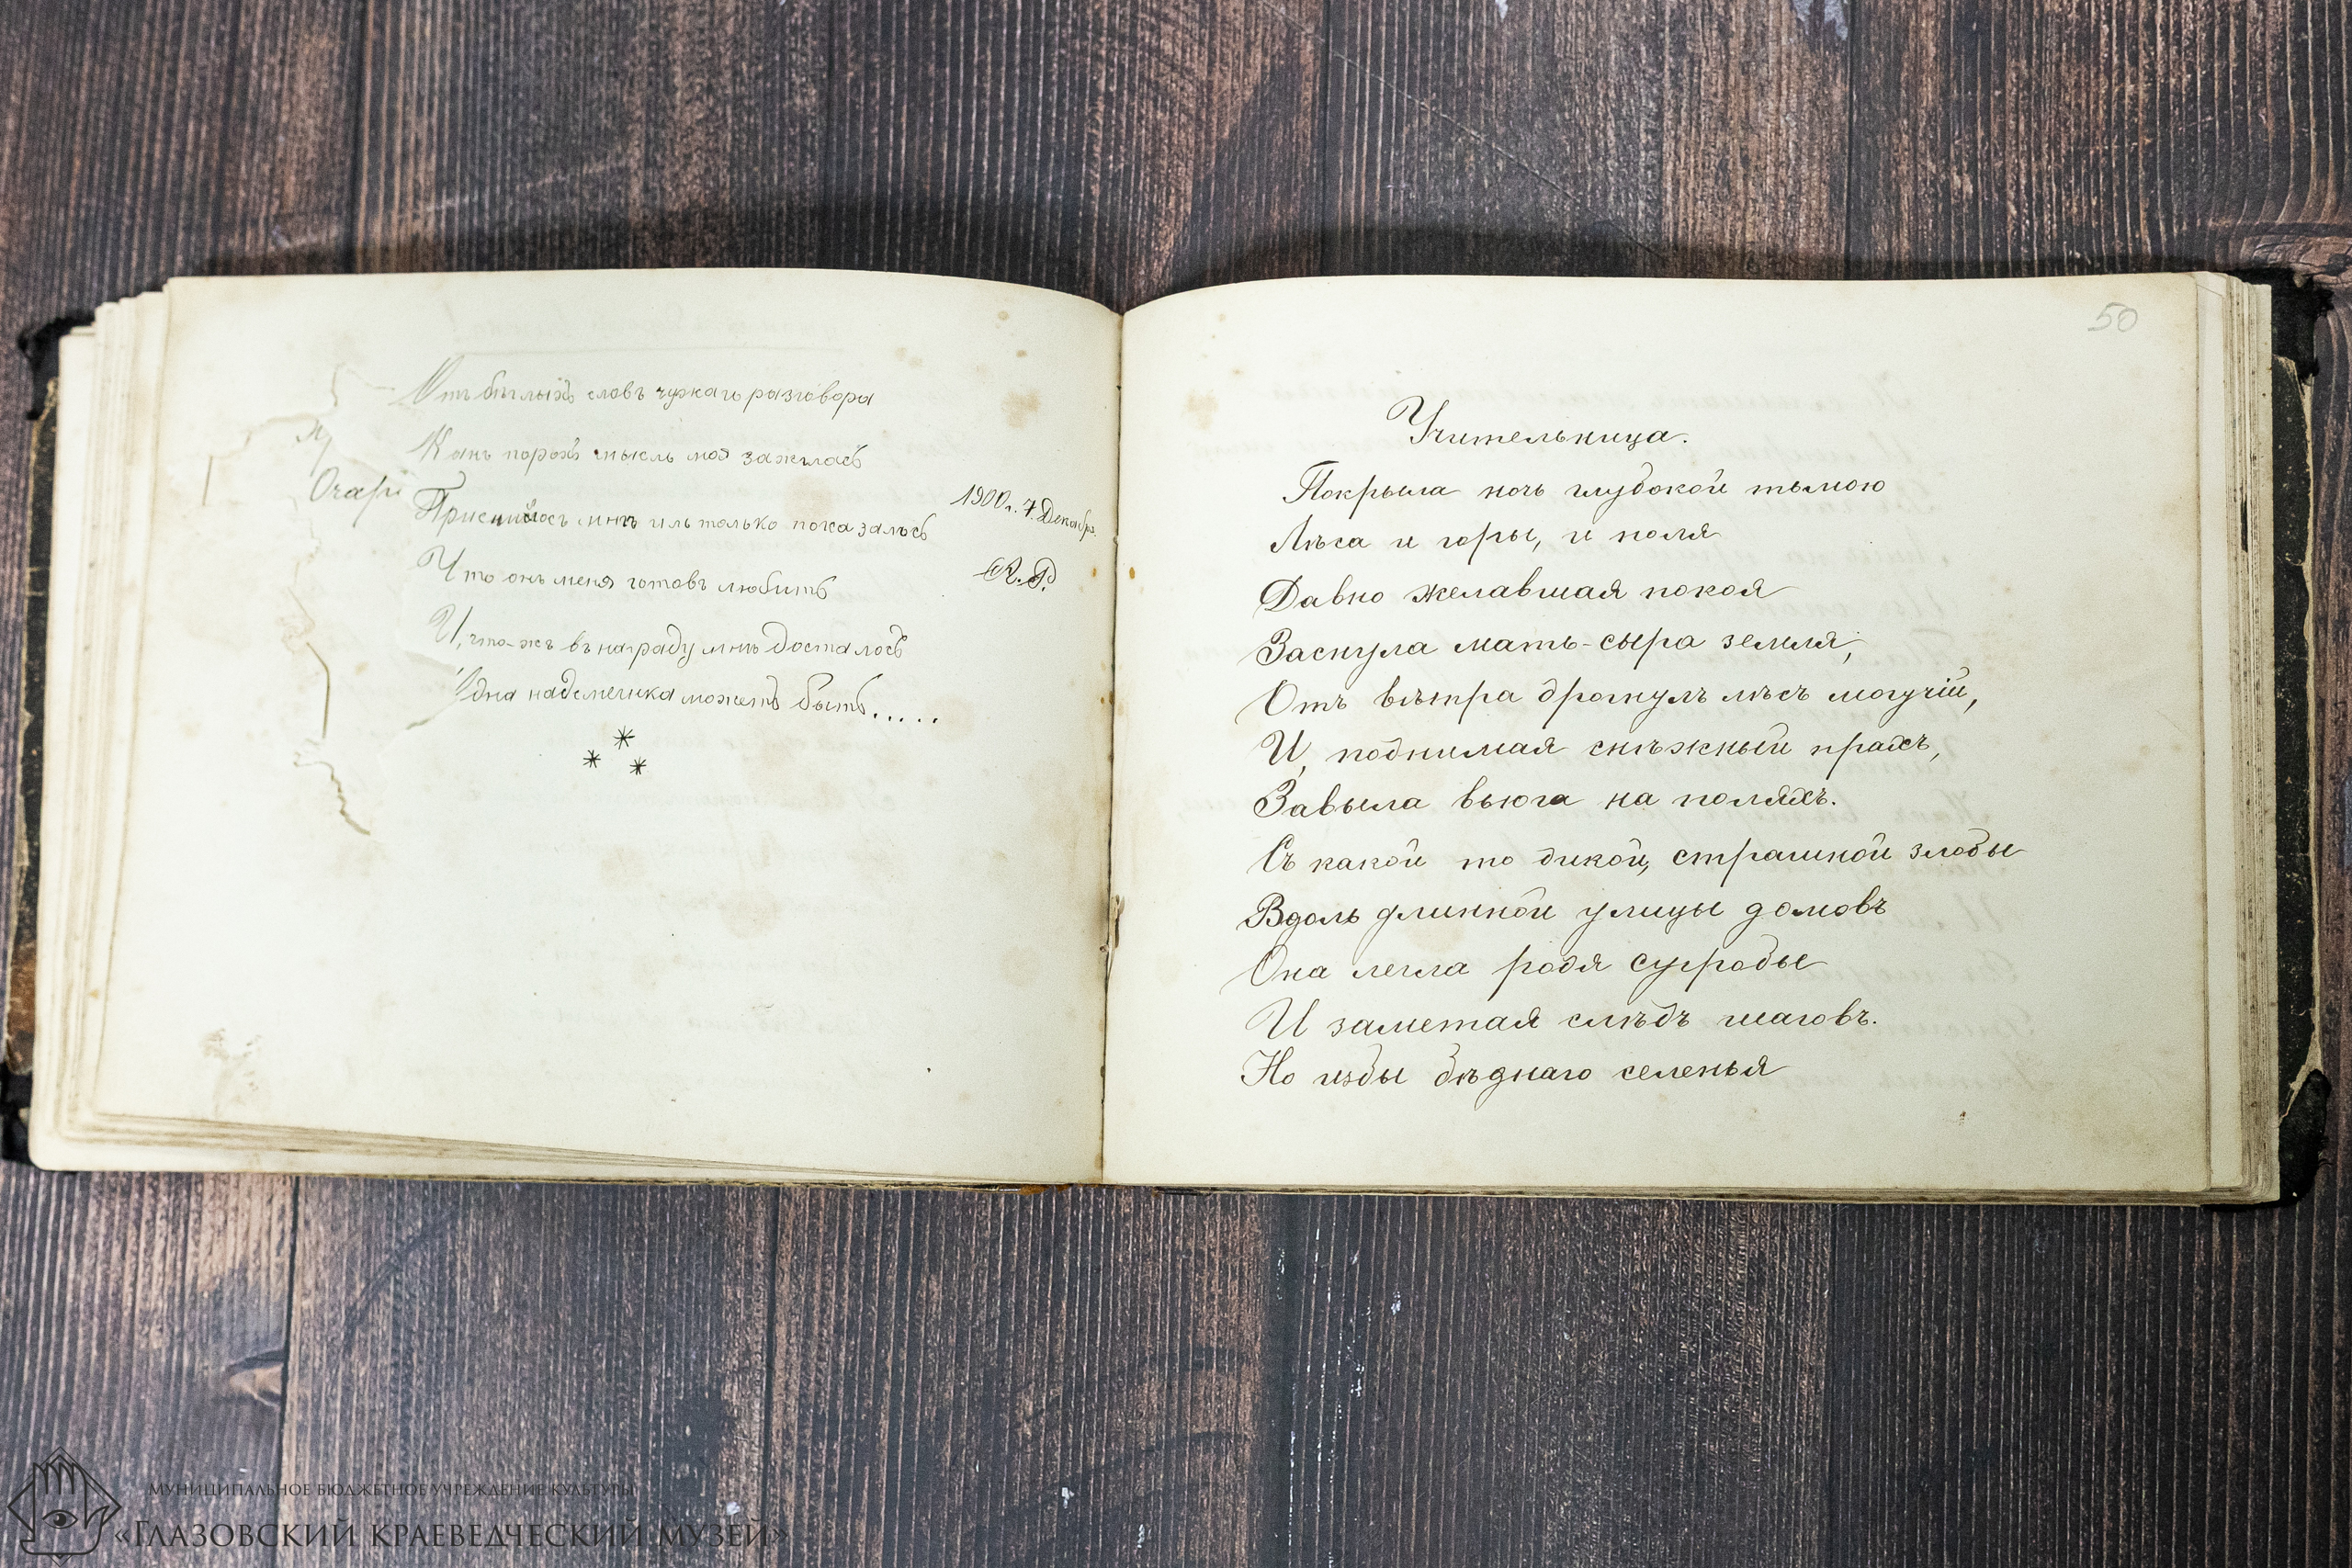 Отъ бѣглыхъ словъ чужаго разговора
Какъ порохъ мысль моя зажглась
Очар
Приснилось мнѣ иль только показалось
1900 г. 7. Декабр.
Что онъ меня готовъ любить
И, что-жъ въ награду мнѣ досталось
Одна надсмешка можетъ быть.....
* * *
50
Учительница.
Покрыла ночь глубокой тьмою
Лѣса и горы, и поля
Давно желавшая покоя
Заснула мать-сыра земля,
Отъ вѣтра дрогнулъ лѣсъ могучій,
И, поднимая снѣжный прахъ,
Завыла вьюга на поляхъ.
Съ какой то дикой, страшной злобы
Вдоль длинной улицы домовъ
Она легла родя сугробы
И заметая слѣдъ шаговъ.
Но избы бѣднаго селенья
МУНИЦИПАЛЬНОЕ БЮДЖЕТНОЕ УЧРЕЖДЕНИЕ КУЛЬТУРЫ
«ГЛАЗОВСКИЙ КРАЕВЕДЧЕСКИЙ МУЗЕЙ»